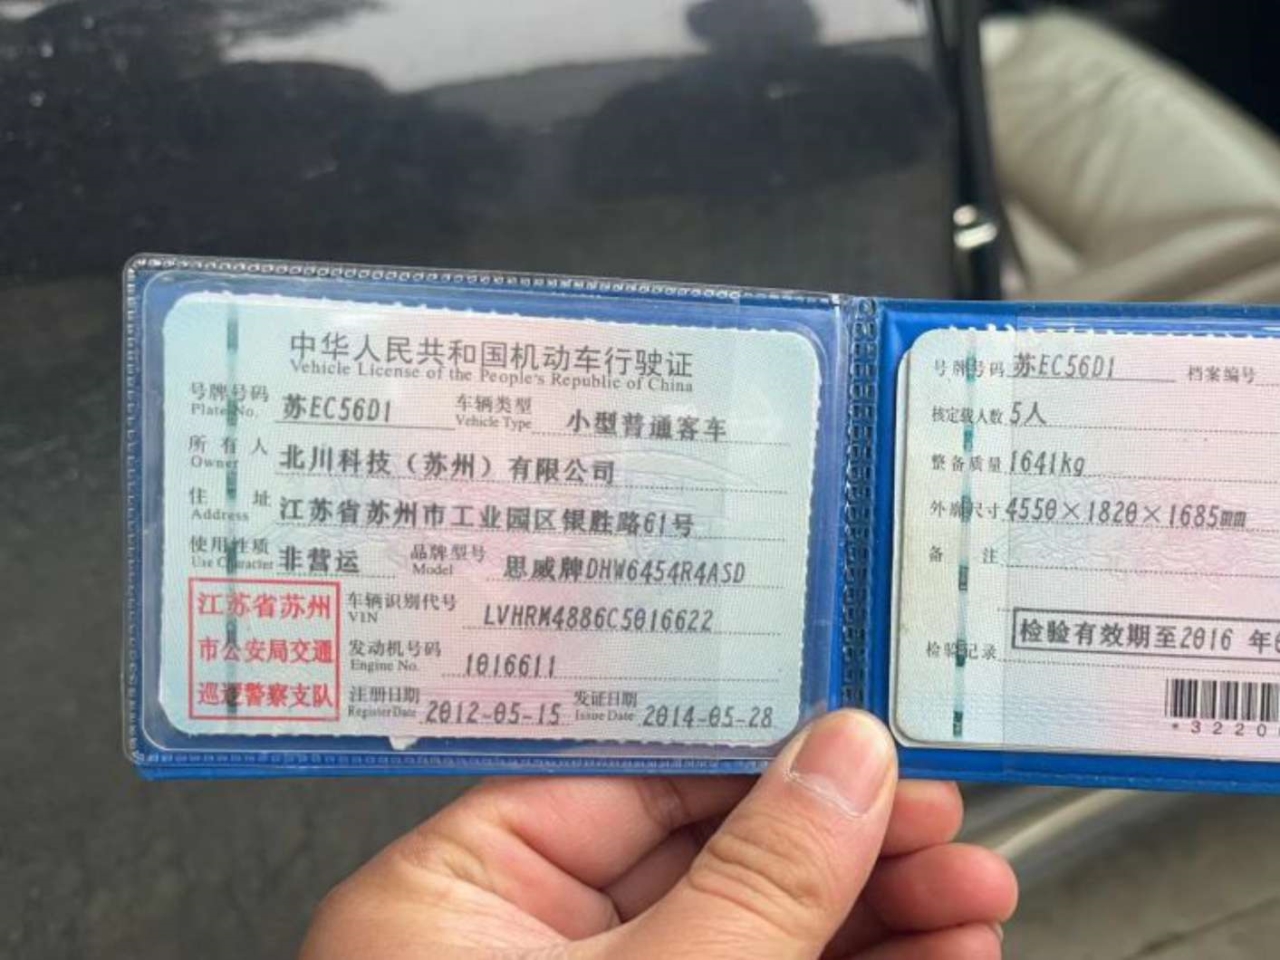 中华人民共和国机动车行驶证
Vehicle License of the People's Republic of China
号牌号码 苏EC56D1 车辆类型 小型普通客车
Plate No. Vehicle Type
所有人 北川科技（苏州）有限公司
Owner
住址 江苏省苏州市工业园区银胜路61号
Address
使用性质 非营运 品牌型号 思威牌DHW6454R4ASD
Use Character Model
江苏省苏州
市公安局交通
巡逻警察支队
车辆识别代号 LVHRM4886C5016622
VIN
发动机号码 1016611
Engine No.
注册日期 2012-05-15 发证日期 2014-05-28
Register Date Issue Date
号牌号码 苏EC56D1 档案编号
核定载人数 5人
整备质量 1641kg
外廓尺寸 4550×1820×1685mm
备注
检验记录 检验有效期至2016 年0
*3220